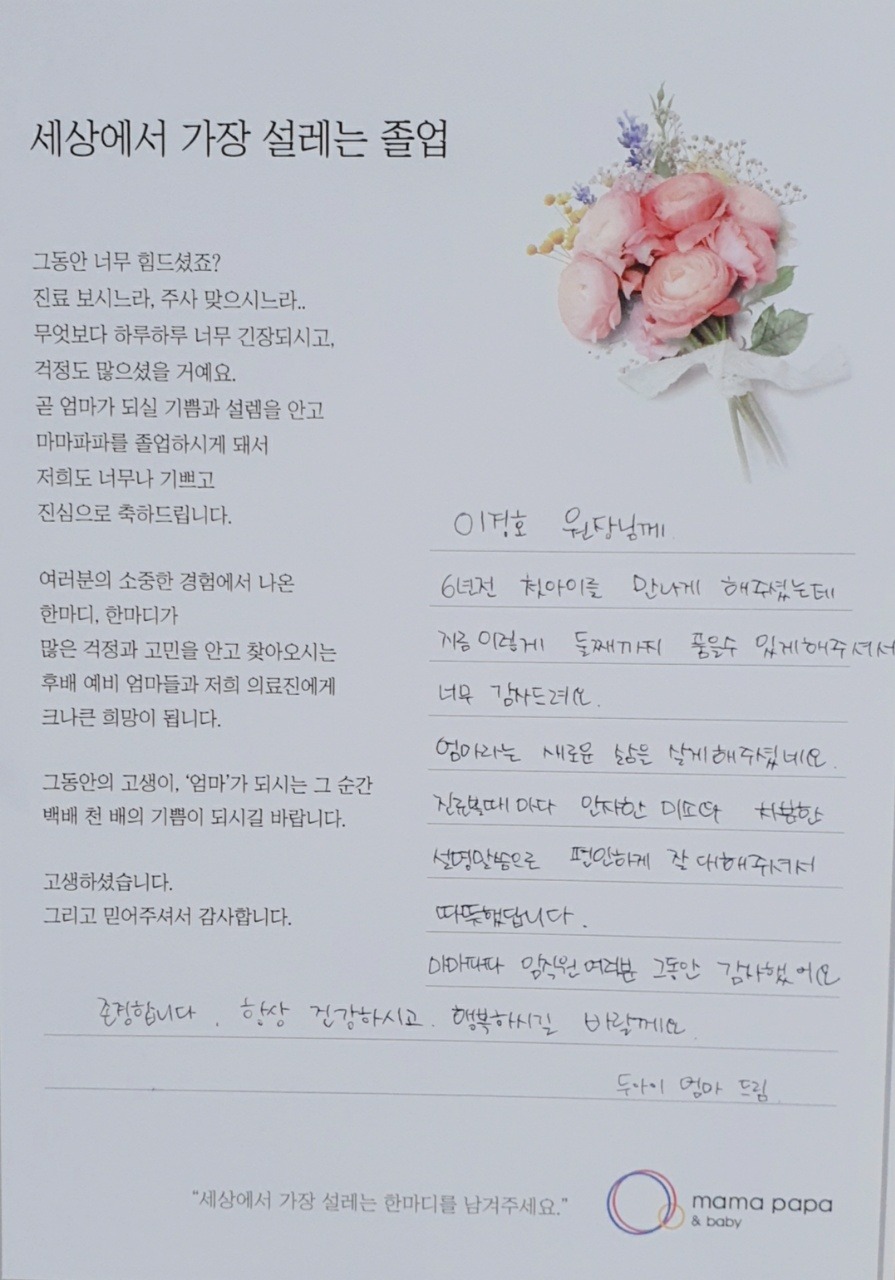 세상에서 가장 설레는 졸업
그동안 너무 힘드셨죠?
진료 보시느라, 주사 맞으시느라..
무엇보다 하루하루 너무 긴장되시고,
걱정도 많으셨을 거예요.
곧 엄마가 되실 기쁨과 설렘을 안고
마마파파를 졸업하시게 돼서
저희도 너무나 기쁘고
진심으로 축하드립니다.
여러분의 소중한 경험에서 나온
한마디, 한마디가
많은 걱정과 고민을 안고 찾아오시는
후배 예비 엄마들과 저희 의료진에게
크나큰 희망이 됩니다.
그동안의 고생이, ‘엄마’가 되시는 그 순간
백배 천 배의 기쁨이 되시길 바랍니다.
고생하셨습니다.
그리고 믿어주셔서 감사합니다.
이경호 원장님께
6년전 첫아이를 만나게 해주셨는데
지금 이렇게 둘째까지 품을수 있게해주셔서
너무 감사드려요.
엄마라는 새로운 삶은 살게해주셨네요.
진료볼때마다 인자한 미소와 차분한
설명말씀으로 편안하게 잘 대해주셔서
따뜻했답니다.
마마파파 임직원 여러분 그동안 감사했어요
존경합니다. 항상 건강하시고. 행복하시길 바랄께요.
두아이 엄마 드림
“세상에서 가장 설레는 한마디를 남겨주세요.”
mama papa
& baby